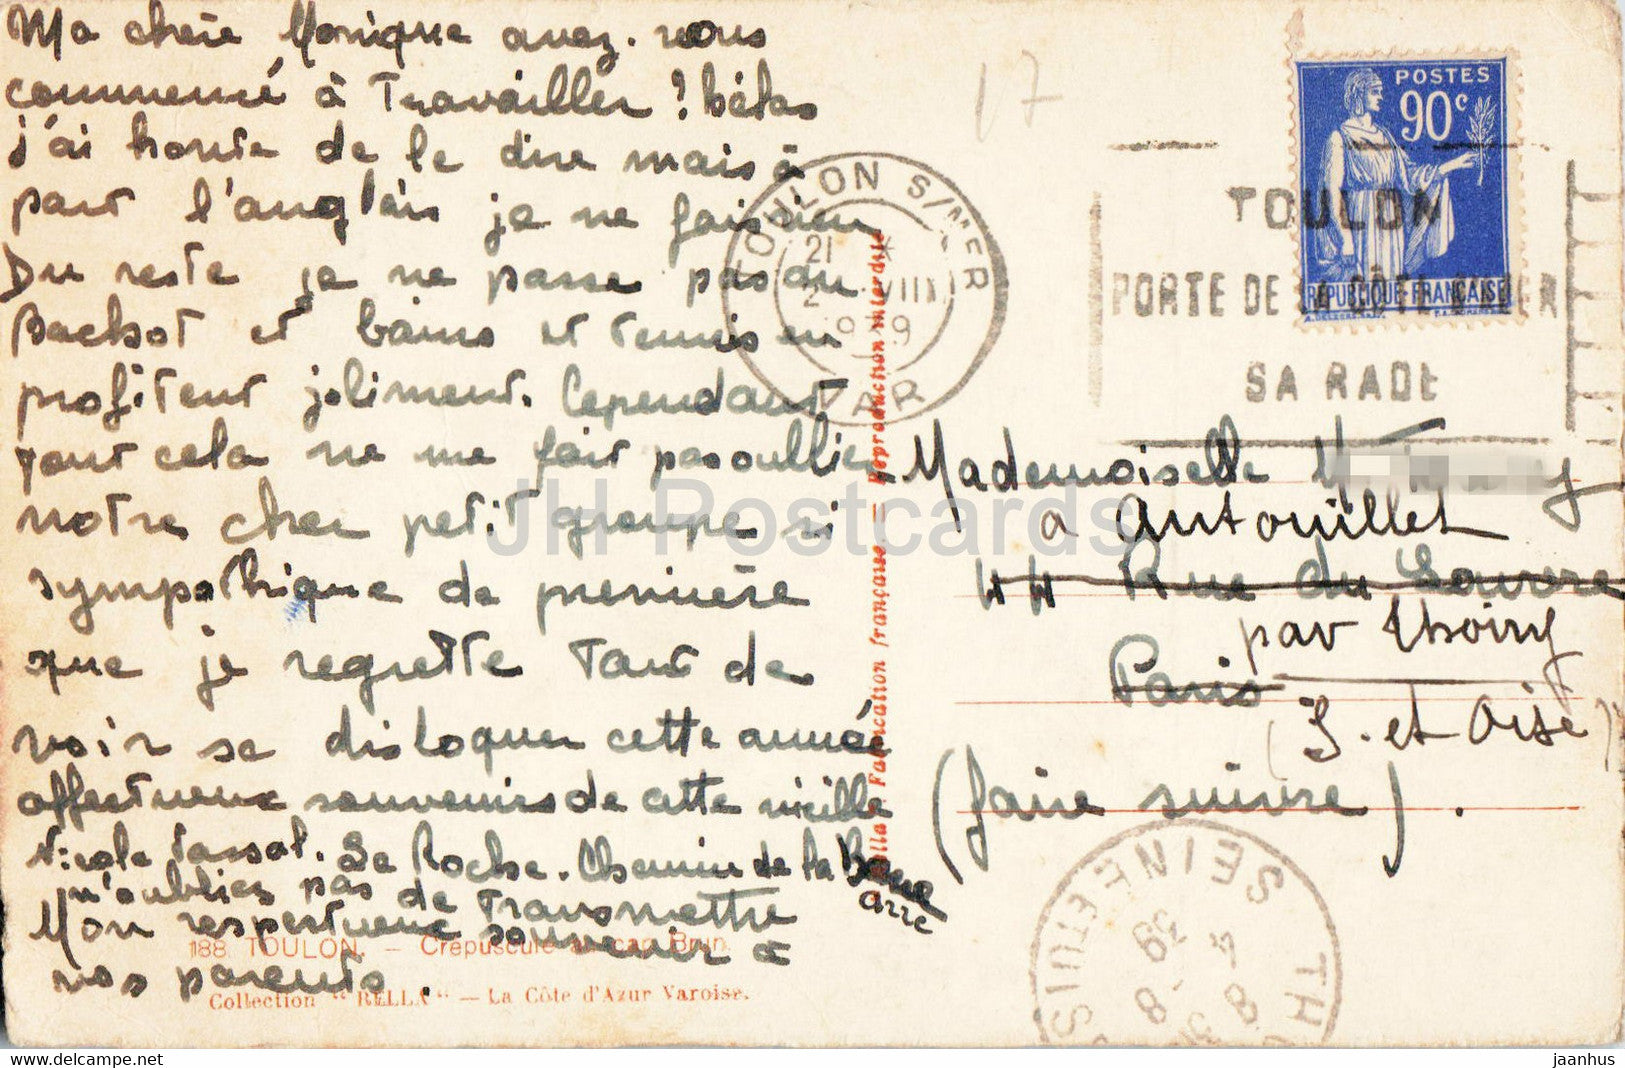 Ma chère Monique avez-vous
commencé à Travailler ? hélas
j'ai honte de le dire mais à
part l'anglais je ne fais rien
Du reste je ne passe pas au
Bachot et bains et tennis en
profitent joliment. Cependant
tout cela ne me fait pas oublier
notre cher petit groupe si
sympathique de première
que je regrette Tant de
voir se disloquer cette année
affectueux souvenirs de cette vieille
Nicole Tassat. La Roche. Chemin de la Barre
Barre
n'oubliez pas de Transmettre
Mon respectueux souvenir à
vos parents.
188. TOULON. — Crépuscule au cap Brun.
Collection "RELLA" — La Côte d'Azur Varoise.
Rella Fabrication française — Reproduction interdite
17
TOULON S/MER
21 *
2 VIII
1939
VAR
POSTES
90c
REPUBLIQUE FRANÇAISE
TOULON
PORTE DE LA CÔTE
SA RADE
Mademoiselle
a Autouillet
44 Rue du Louvre
par Thoiry
Paris
(S. et Oise)
(faire suivre).
SEINE ET OISE
4 8
39
JH Postcards
jaanhus
www.hippostcard.com